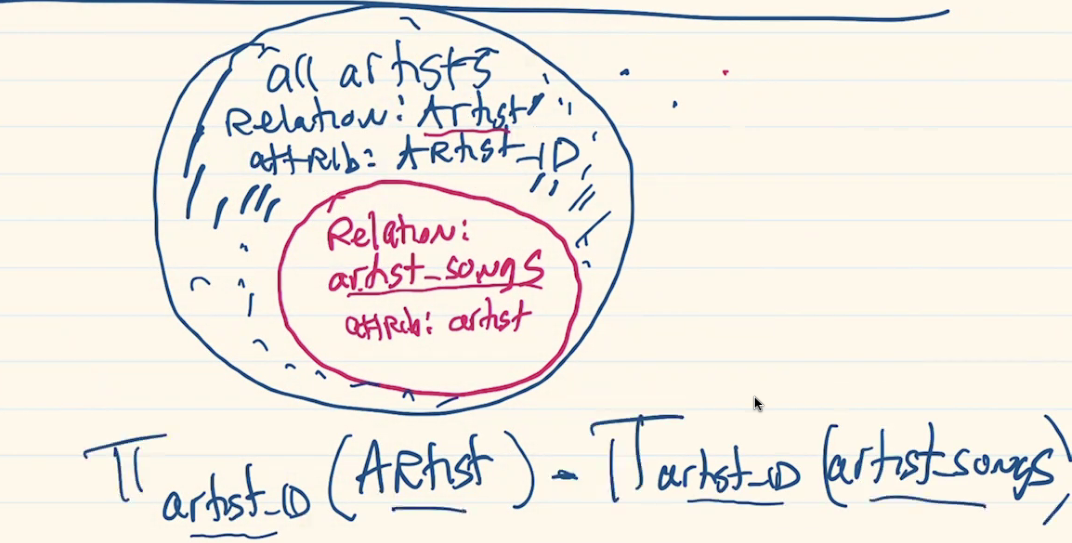 all artists
Relation: Artist
attrib: ARtist_ID
Relation:
artist_songs
attrib: artist
π artist_ID (ARtist) - π artist_ID (artist_songs)